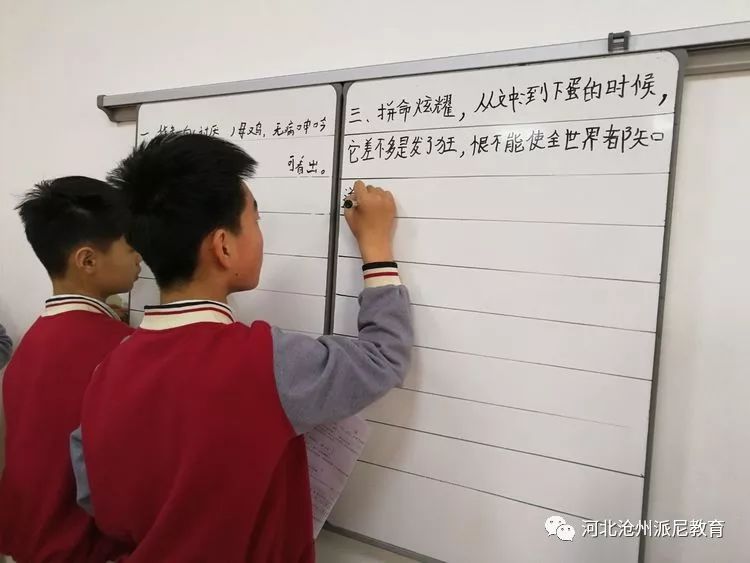 母鸡、无病呻吟
可看出。
三、拼命炫耀，从文中到下蛋的时候，
它差不多是发了狂，恨不能使全世界都知
河北沧州派尼教育